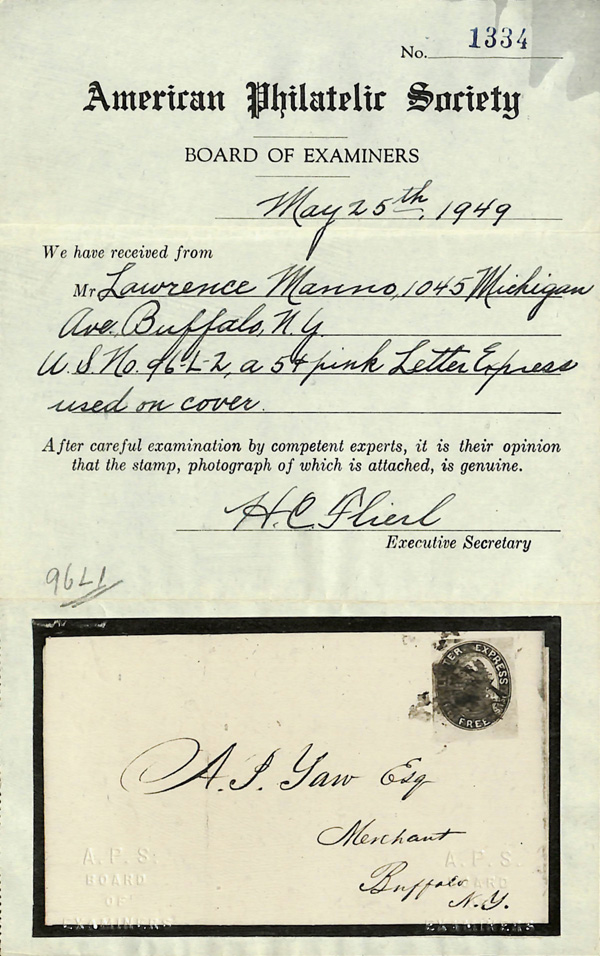 No. 1334
American Philatelic Society
BOARD OF EXAMINERS
May 25th, 1949
We have received from
Mr Lawrence Manno, 1045 Michigan
Ave. Buffalo, N.Y.
U.S. No. 96-L-2, a 5¢ pink Letter Express
used on cover.
After careful examination by competent experts, it is their opinion
that the stamp, photograph of which is attached, is genuine.
H.C. Flierl
Executive Secretary
96L1
EXPRESS
FREE
A. S. Yaw Esq
Merchant
Buffalo
N.Y.
A.P.S.
BOARD
OF
EXAMINERS
A.P.S.
BOARD
EXAMINERS